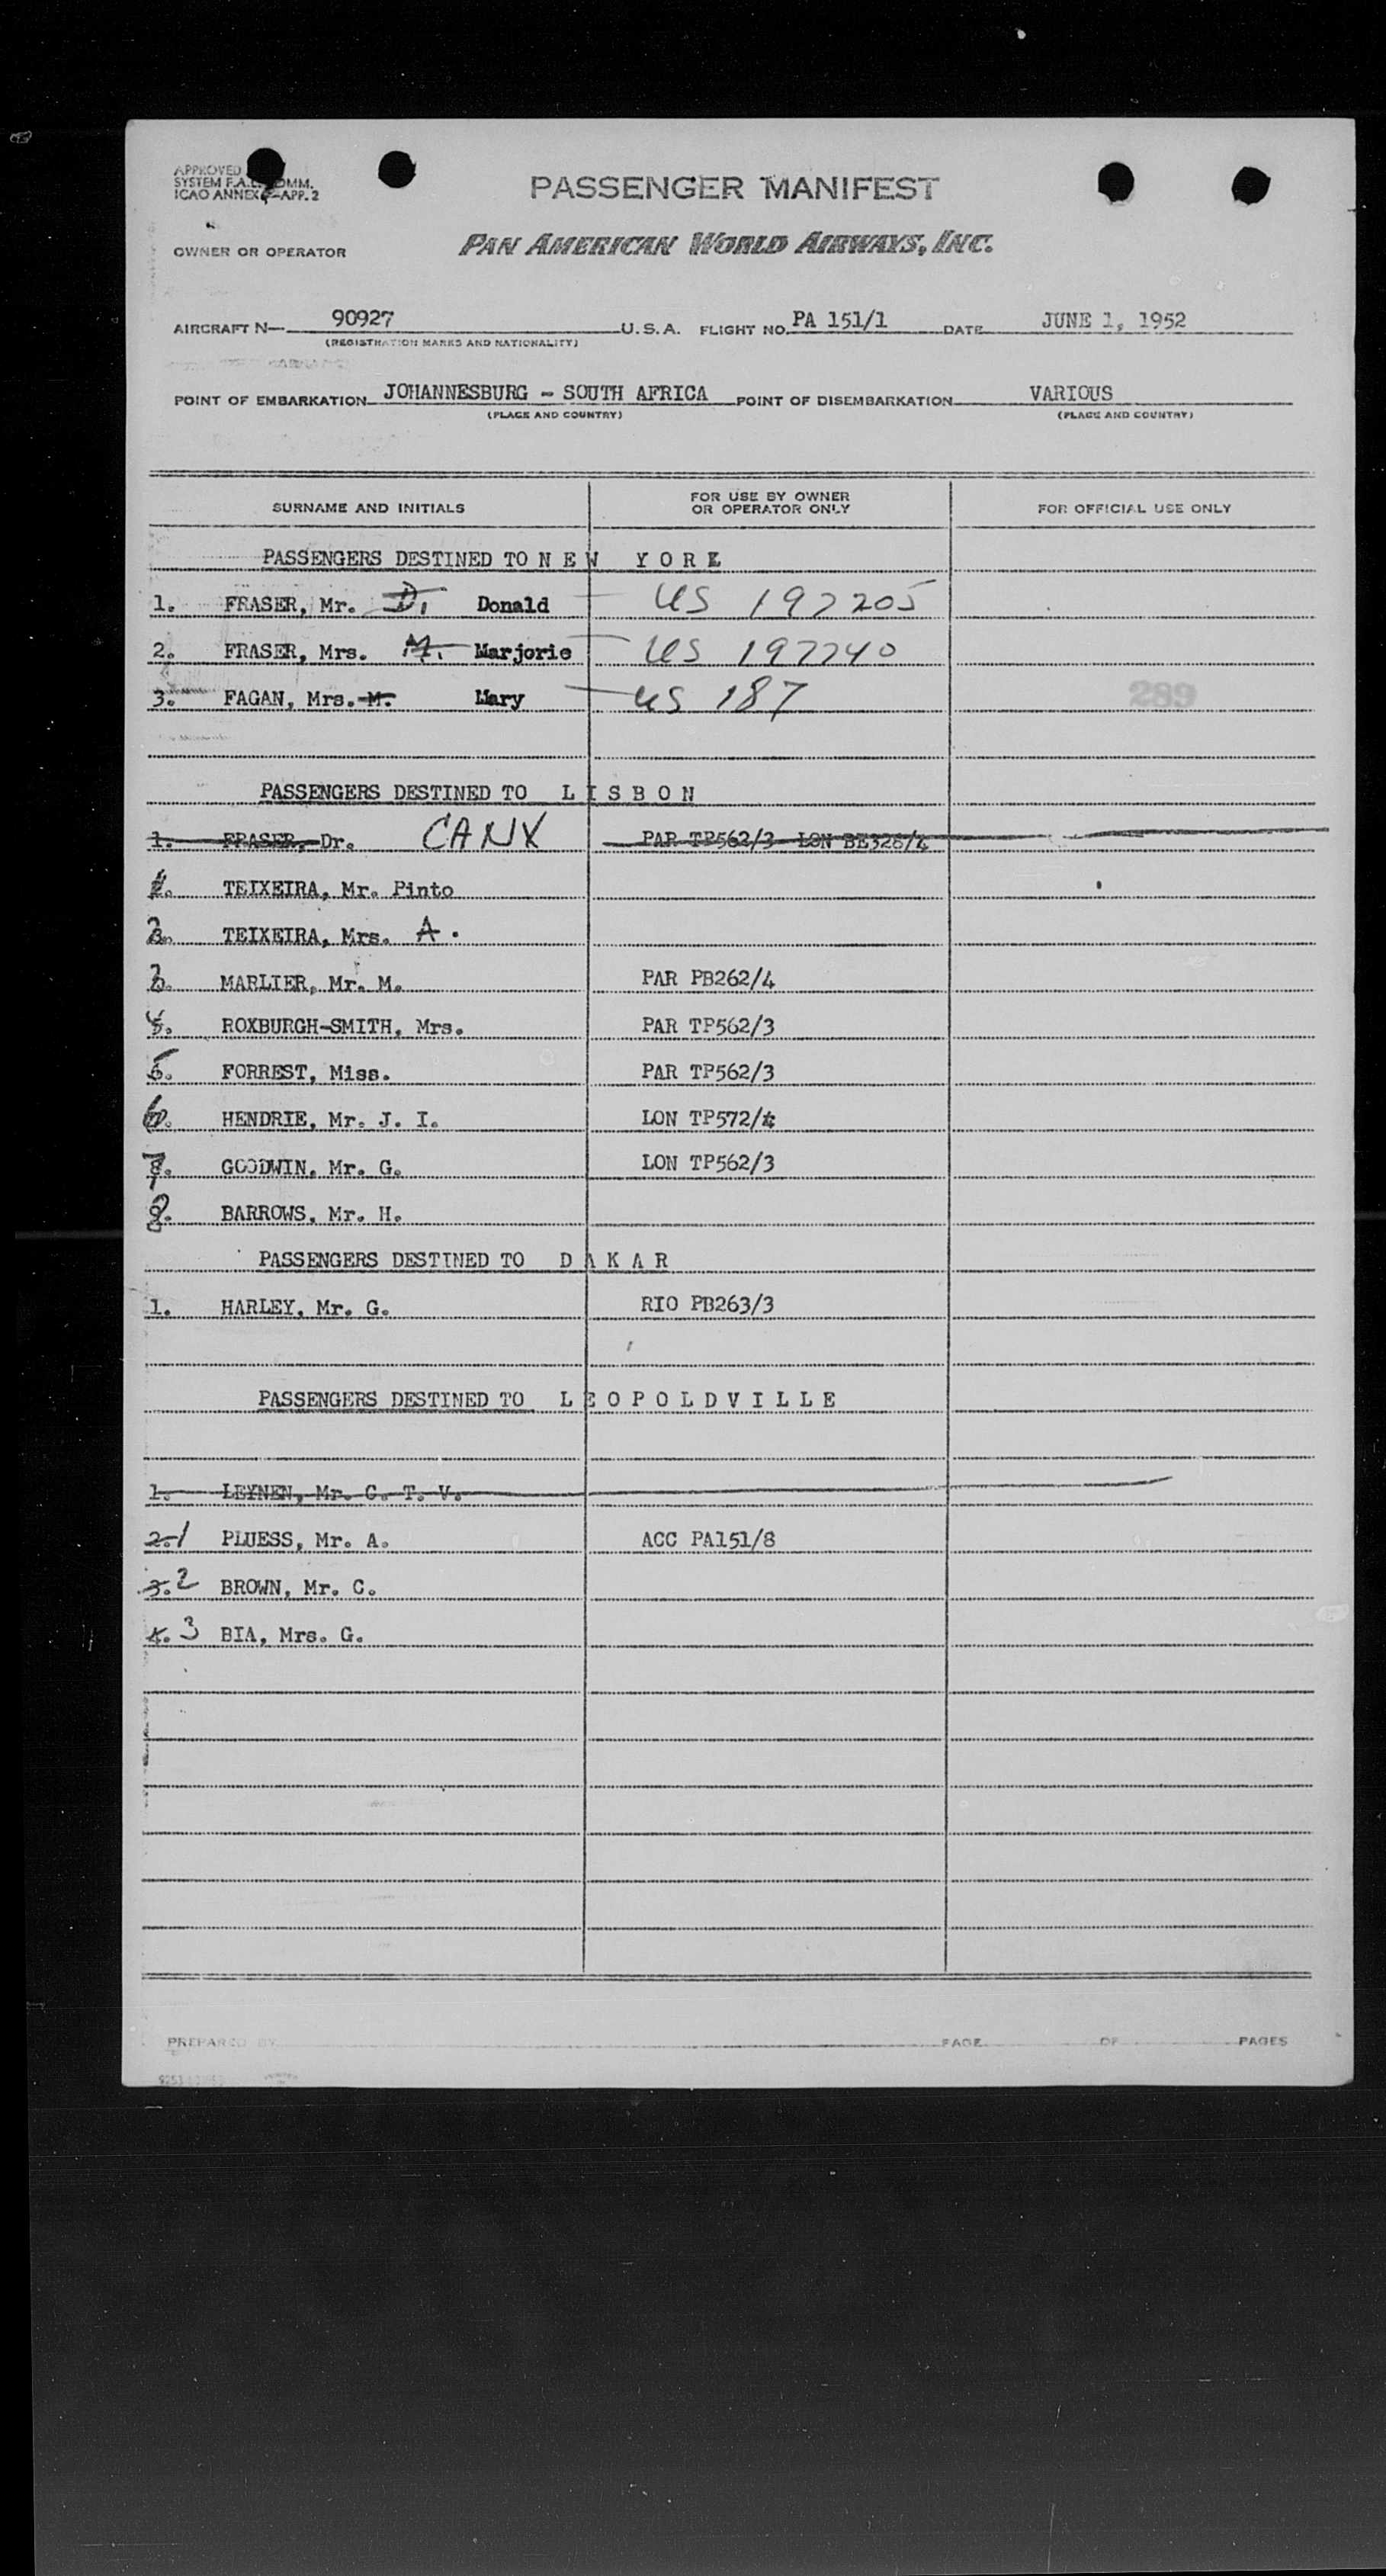 APPROVED
SYSTEM F.A.L. COMM.
ICAO ANNEX APP. 2
PASSENGER MANIFEST
OWNER OR OPERATOR PAN AMERICAN WORLD AIRWAYS, INC.
AIRCRAFT N— 90927 U.S.A. FLIGHT NO. PA 151/1 DATE JUNE 1, 1952
(REGISTRATION MARKS AND NATIONALITY)
POINT OF EMBARKATION JOHANNESBURG - SOUTH AFRICA POINT OF DISEMBARKATION VARIOUS
(PLACE AND COUNTRY) (PLACE AND COUNTRY)
SURNAME AND INITIALS FOR USE BY OWNER OR OPERATOR ONLY FOR OFFICIAL USE ONLY
PASSENGERS DESTINED TO N E W Y O R K
1. FRASER, Mr. D. Donald US 197205
2. FRASER, Mrs. M. Marjorie US 197240
3. FAGAN, Mrs. M. Mary US 187 289
PASSENGERS DESTINED TO L I S B O N
1. FRASER, Dr. CANX PAR TP562/3 LON BE326/4
1. TEIXEIRA, Mr. Pinto
2. TEIXEIRA, Mrs. A.
3. MARLIER, Mr. M. PAR PB262/4
4. ROXBURGH-SMITH, Mrs. PAR TP562/3
5. FORREST, Miss. PAR TP562/3
6. HENDRIE, Mr. J. I. LON TP572/4
7. GOODWIN, Mr. G. LON TP562/3
8. BARROWS, Mr. H.
PASSENGERS DESTINED TO D A K A R
1. HARLEY, Mr. G. RIO PB263/3
PASSENGERS DESTINED TO L E O P O L D V I L L E
1. LEYNEN, Mr. C. T. V.
2. 1 PLUESS, Mr. A. ACC PA151/8
3. 2 BROWN, Mr. C.
4. 3 BIA, Mrs. G.
PREPARED BY PAGE OF PAGES